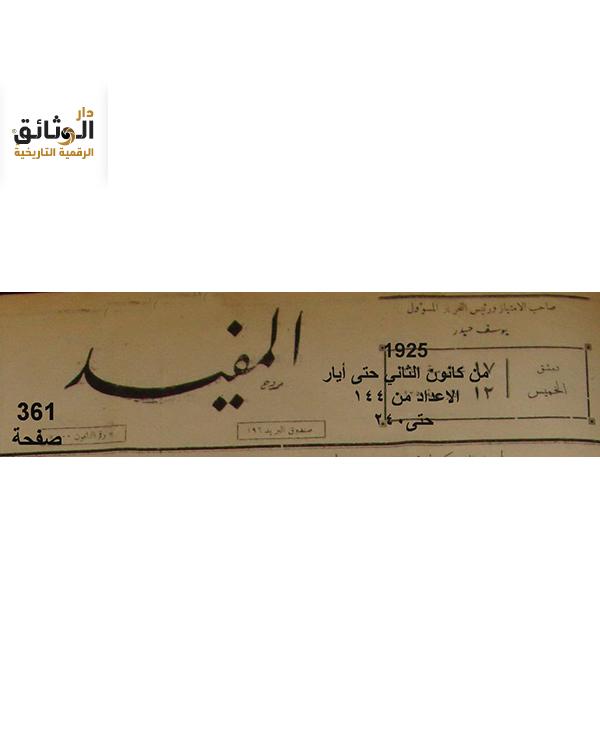 دار
الوثائق
الرقمية التاريخية
صاحب الامتياز ورئيس التحرير المسؤول
يوسف حيدر
المفيد
1925
من كانون الثاني حتى أيار
الاعداد من ١٤٤
حتى ٢٤٠
دمشق
الخميس
١٧
١٢
361
صفحة
صندوق البريد ١٩٦